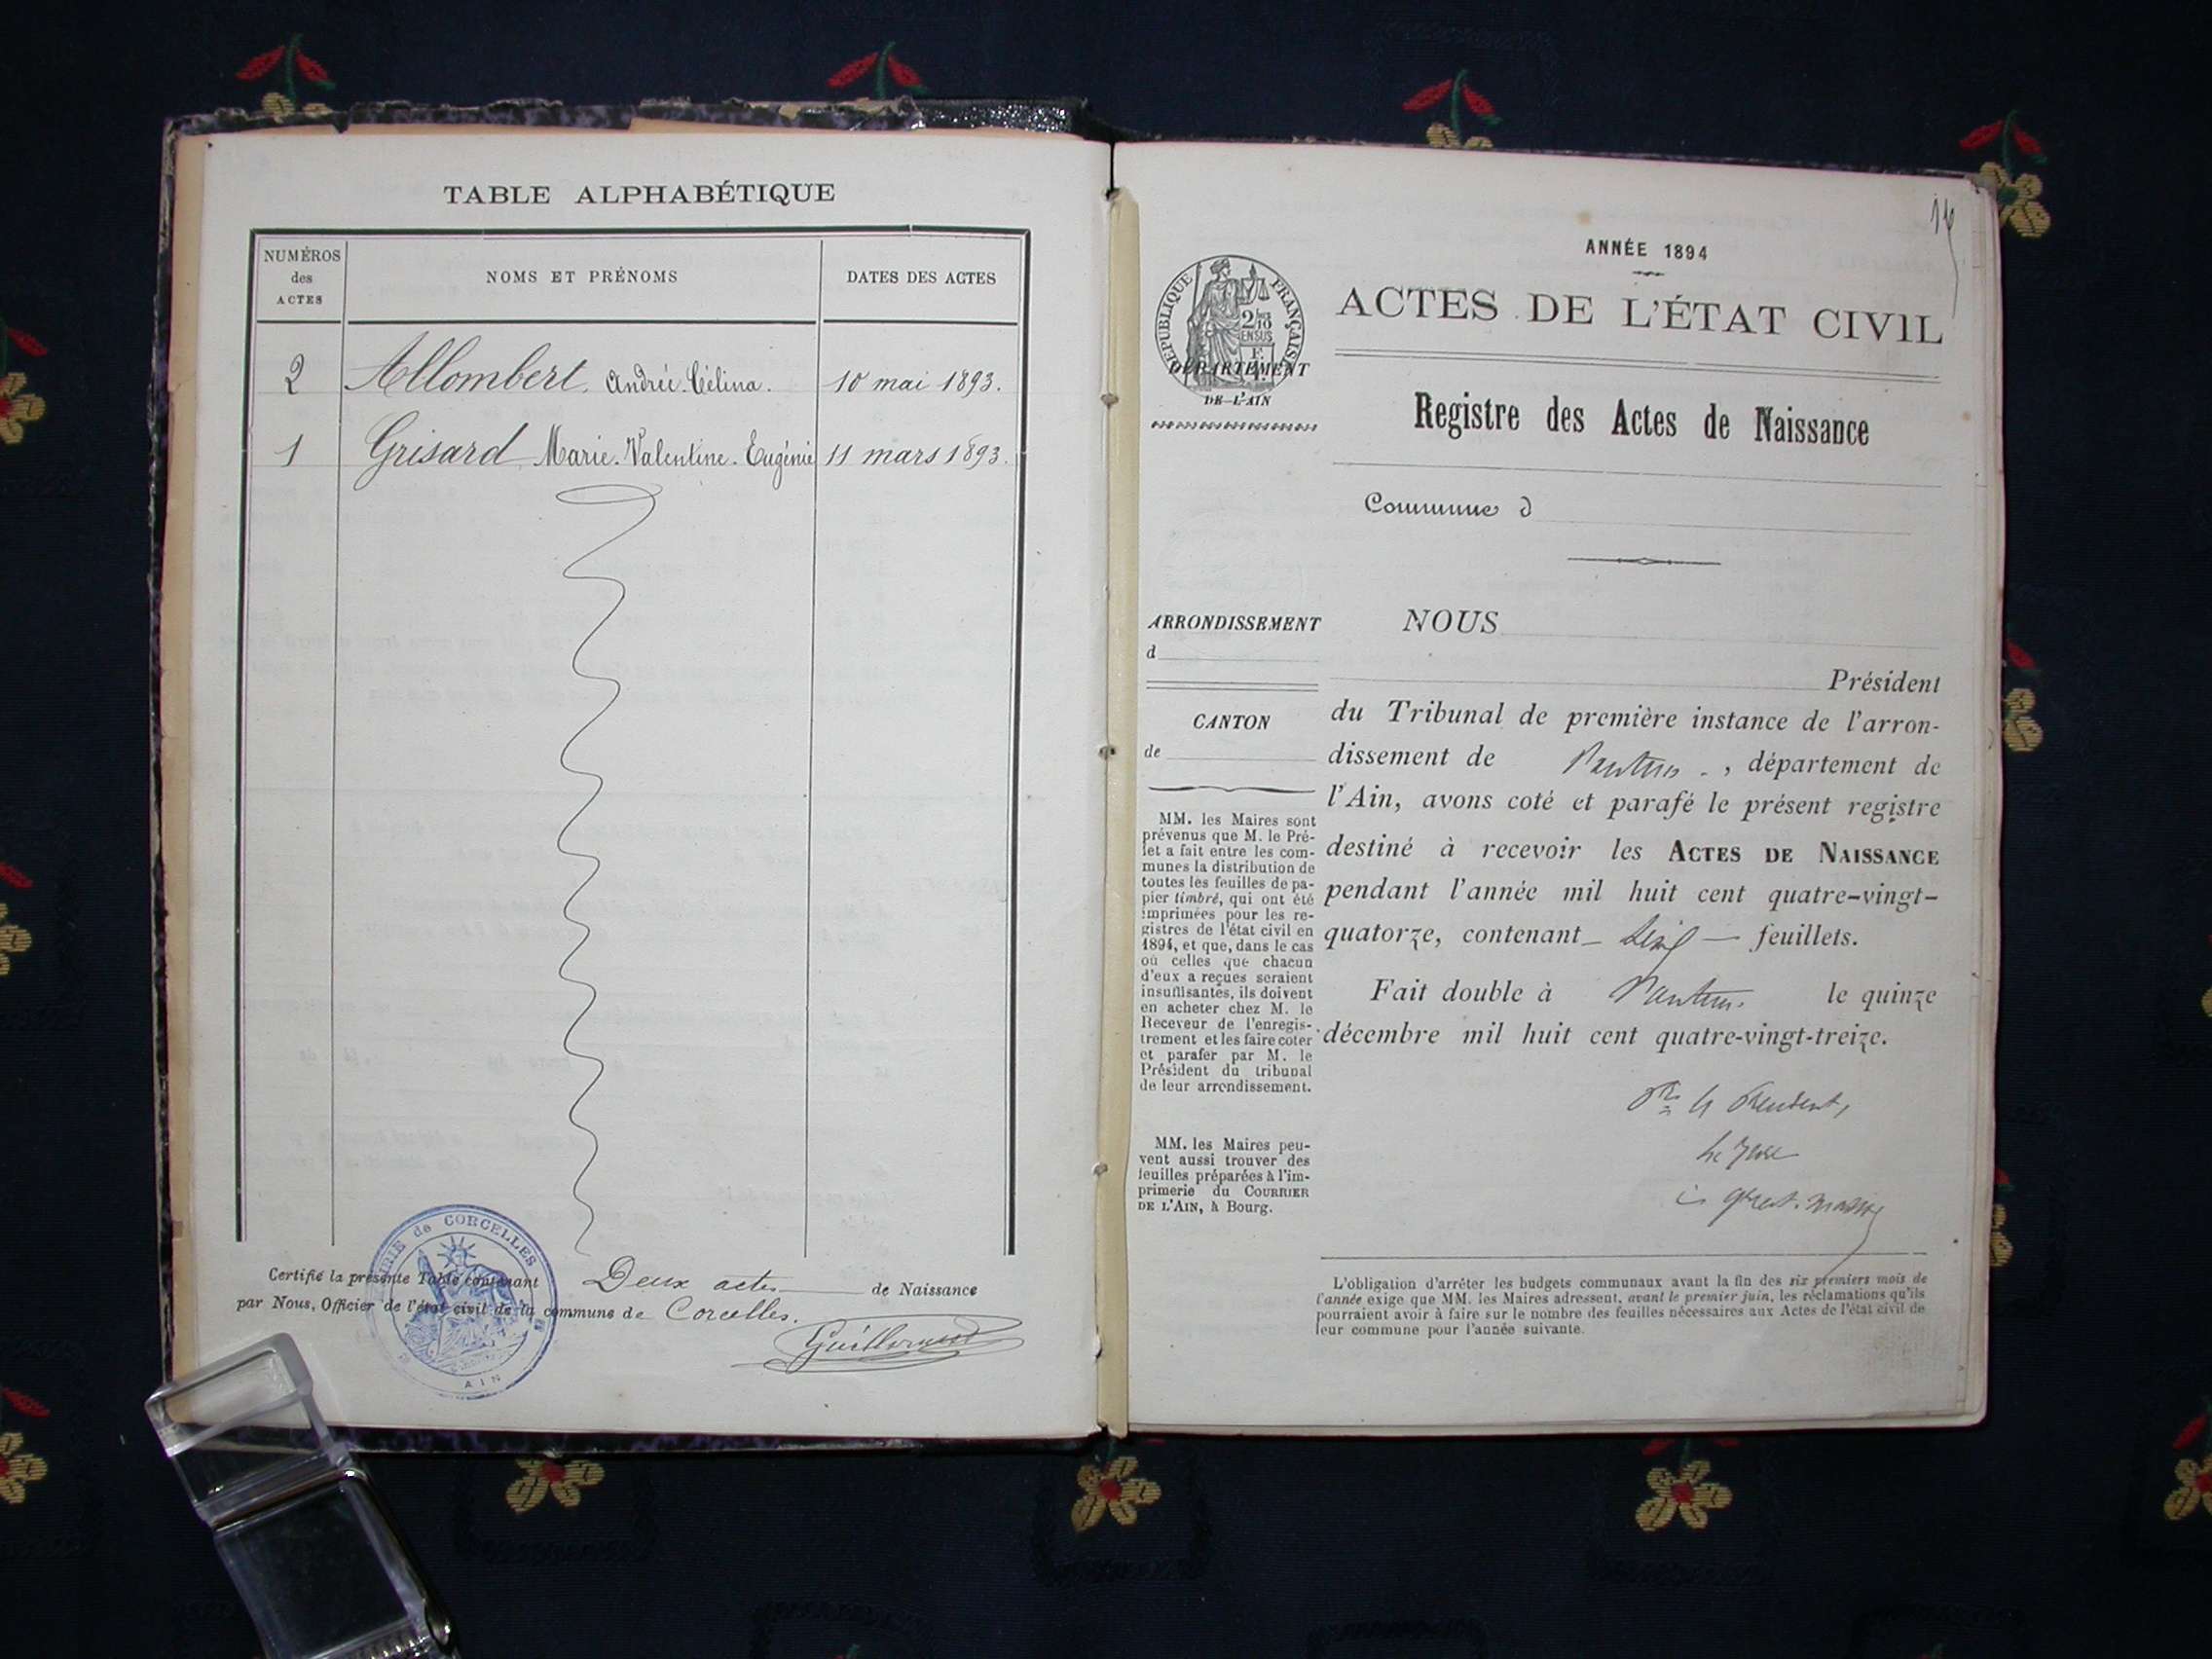 TABLE ALPHABÉTIQUE
NUMÉROS des ACTES
NOMS ET PRÉNOMS
DATES DES ACTES
2 Allombert Andrée Célina. 10 mai 1893.
1 Grisard Marie-Valentine-Eugénie 11 mars 1893.
Certifié la présente Table contenant Deux actes de Naissance
par Nous, Officier de l'état civil de la commune de Corcelles.
MAIRIE de CORCELLES
AIN
ANNÉE 1894
ACTES DE L'ÉTAT CIVIL
RÉPUBLIQUE FRANÇAISE
2/10
EN SUS
DÉPARTEMENT
DE L'AIN
Registre des Actes de Naissance
Commune d
ARRONDISSEMENT
d
CANTON
de
MM. les Maires sont
prévenus que M. le Pré-
fet a fait entre les com-
munes la distribution de
toutes les feuilles de pa-
pier timbré, qui ont été
imprimées pour les re-
gistres de l'état civil en
1894, et que, dans le cas
où celles que chacun
d'eux a reçues seraient
insuffisantes, ils doivent
en acheter chez M. le
Receveur de l'enregis-
trement et les faire coter
et parafer par M. le
Président du tribunal
de leur arrondissement.
MM. les Maires peu-
vent aussi trouver des
feuilles préparées à l'im-
primerie du COURRIER
DE L'AIN, à Bourg.
NOUS
Président
du Tribunal de première instance de l'arron-
dissement de Nantua, département de
l'Ain, avons coté et parafé le présent registre
destiné à recevoir les ACTES DE NAISSANCE
pendant l'année mil huit cent quatre-vingt-
quatorze, contenant feuillets.
Fait double à Nantua le quinze
décembre mil huit cent quatre-vingt-treize.
Le Juge
L'obligation d'arrêter les budgets communaux avant la fin des six premiers mois de
l'année exige que MM. les Maires adressent, avant le premier juin, les réclamations qu'ils
pourraient avoir à faire sur le nombre des feuilles nécessaires aux Actes de l'état civil de
leur commune pour l'année suivante.